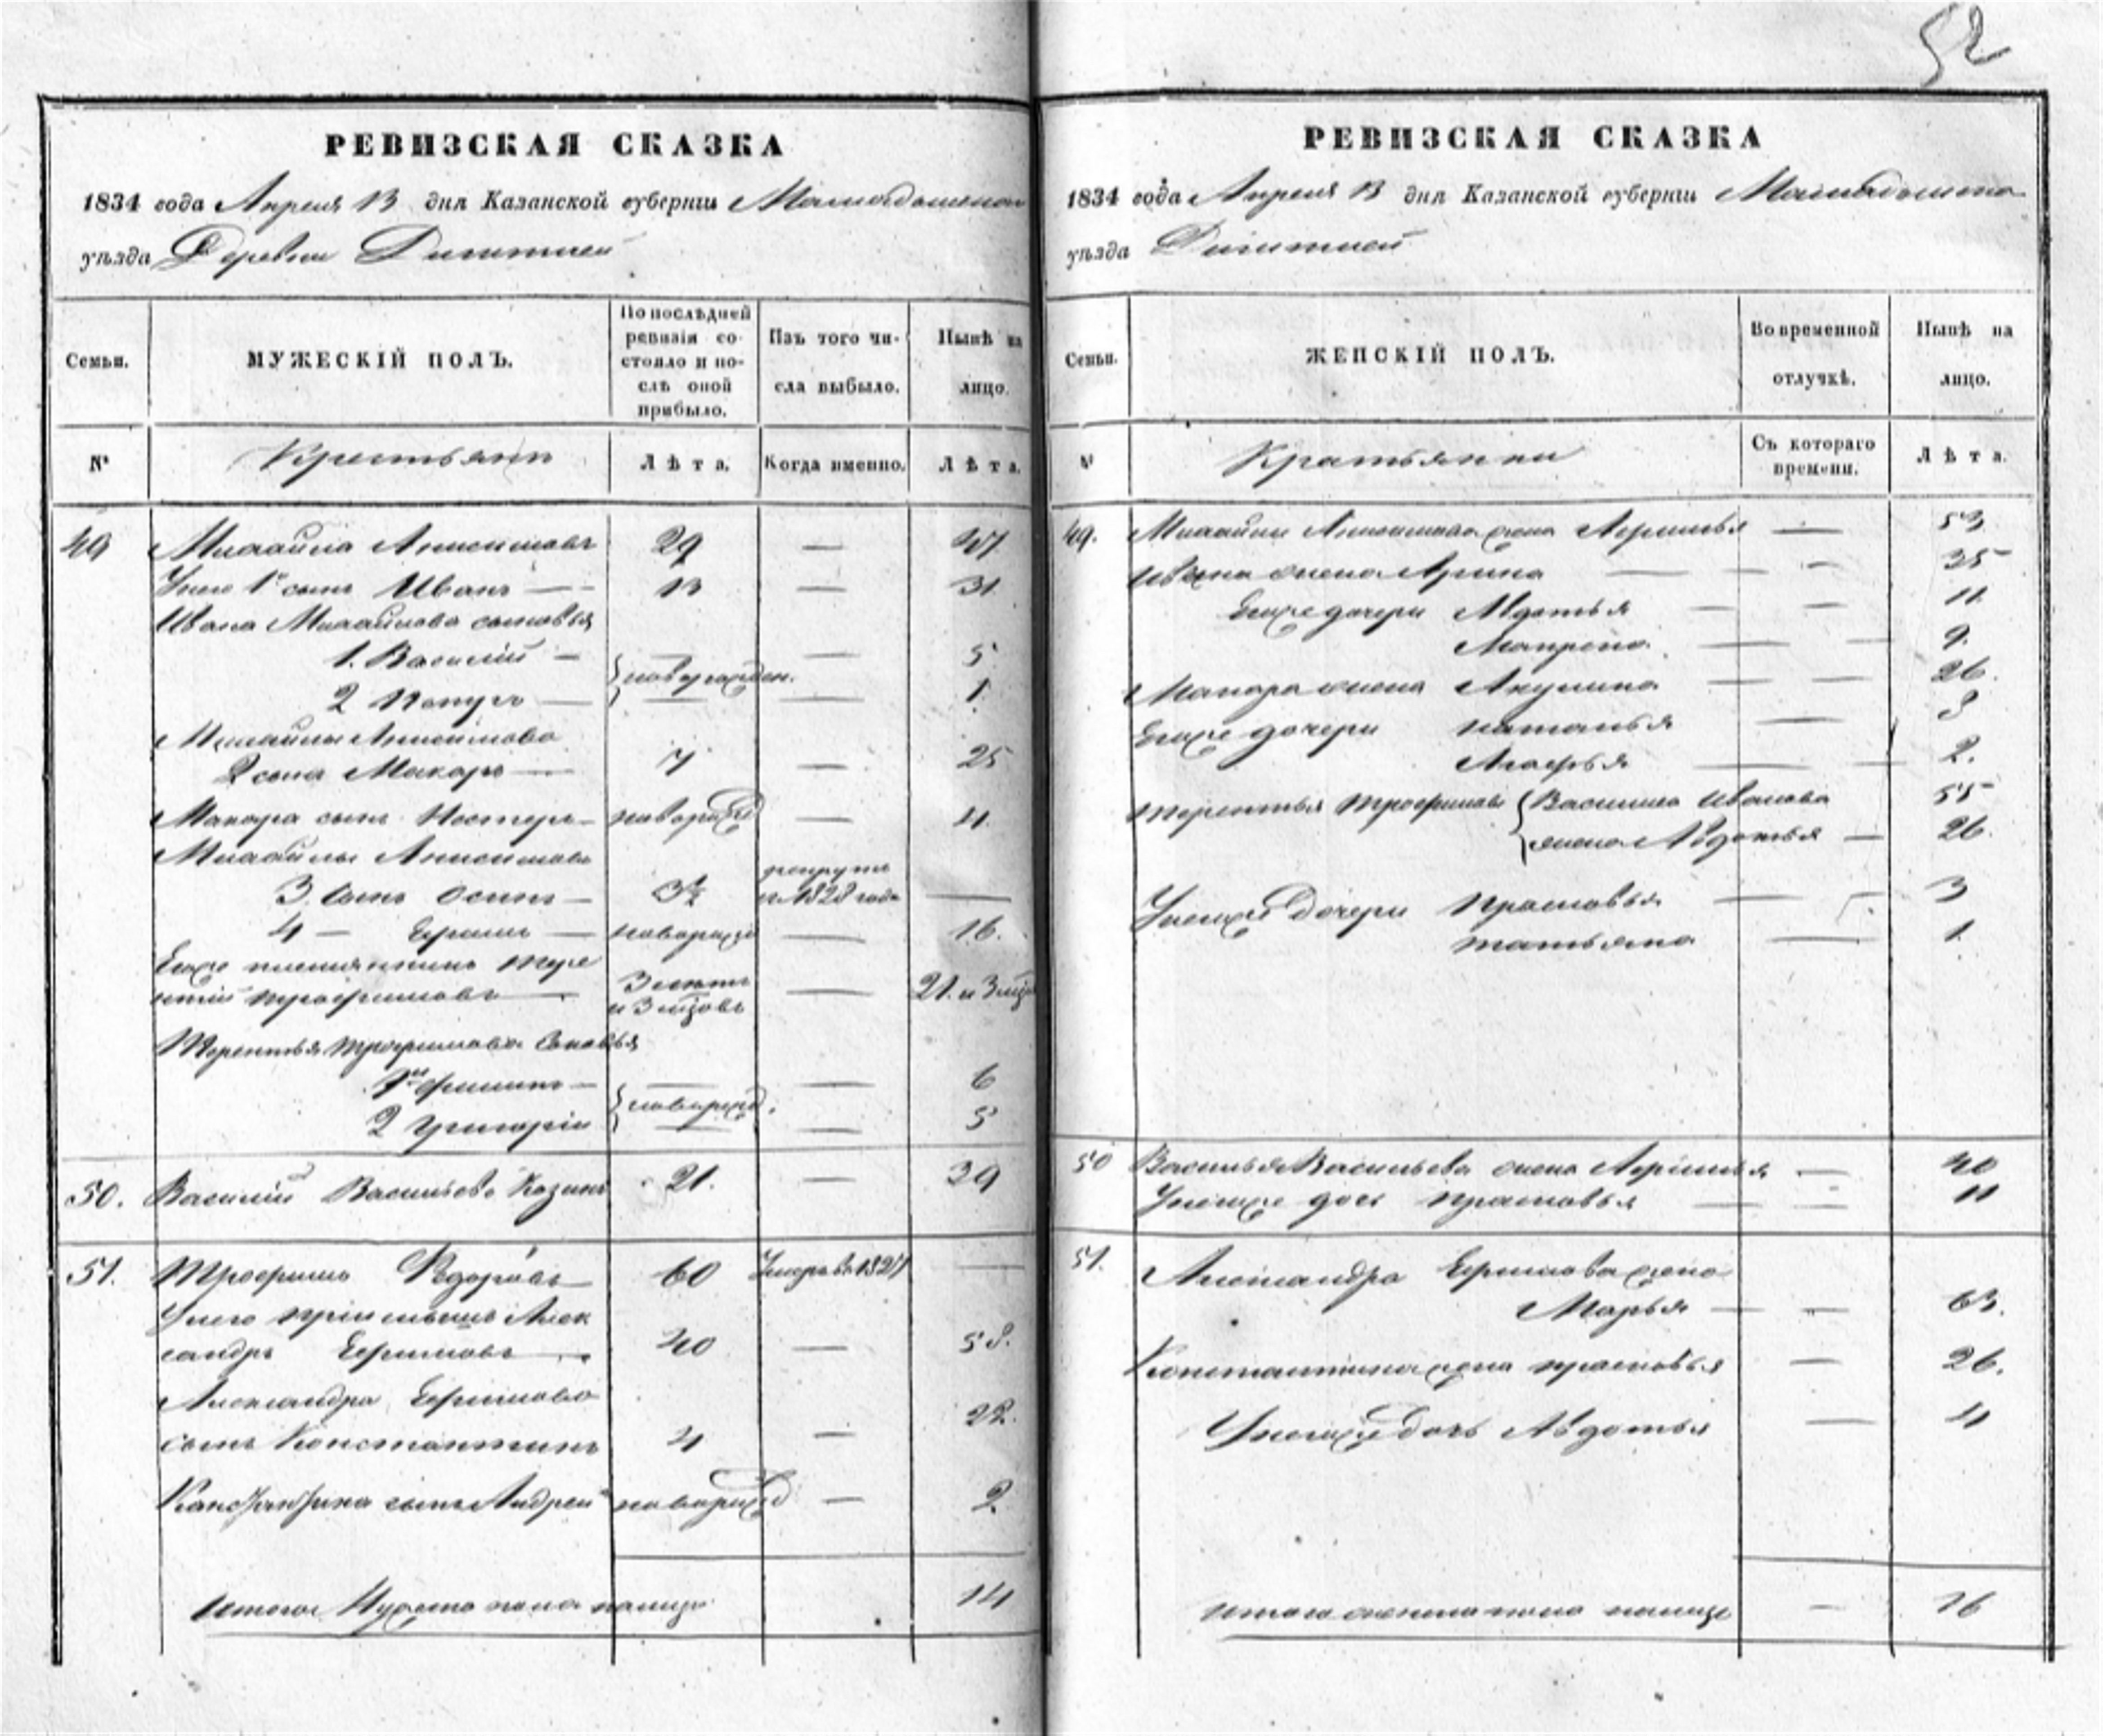 52
РЕВИЗСКАЯ СКАЗКА
1834 года Апреля 13 дня Казанской губернии
уѣзда Деревни
Семьи.
МУЖЕСКІЙ ПОЛЪ.
По послѣдней ревизіи состояло и послѣ оной прибыло.
Изъ того числа выбыло.
Нынѣ на лицо.
№
Крестьянъ
Лѣта.
Когда именно.
Лѣта.
49 Михайла Анисимовъ 29 — 47
У него 1й сынъ Иванъ — 13 — 31
Ивана Михайлова сыновья
1. Василий — — 5
новорожден.
2 Петръ — — 1
Михайлы Анисимова
2 сынъ Макаръ — 7 — 25
Макара сынъ Нестеръ — новорожд — 4
Михайлы Анисимова
3. сынъ Осипъ — 3½ рекрутъ 1828 года —
4 — — новорожд — 16.
Его же племянникъ Тере
нтій Трофимовъ — 3 летъ и 3 мцовъ — 21. и 3 мцо
Терентья Трофимова сыновья
1й Филипъ — — 6
новорожд.
2 Григорій — 5
50. Василій Васильевъ Козинъ 21. — 39
51. Трофимъ Федоровъ — 60 Умеръ въ 1827 —
У него Алек
сандръ Ефимовъ — 40 — 58.
Александра Ефимова
сынъ Константинъ 4 — 22.
Константина сынъ Андрей новорожд — 2
Итого Мужеска пола налицо 14
РЕВИЗСКАЯ СКАЗКА
1834 года Апреля 13 дня Казанской губернии
уѣзда
Семьи.
ЖЕНСКІЙ ПОЛЪ.
Во временной отлучкѣ.
Нынѣ на лицо.
№
Съ котораго времени.
Лѣта.
49. Михайлы Анисимова жена — 53
Ивана жена Арина — — — 35
Его же дочери Авдотья — — 11
Матрена — — 9.
Макара жена Акулина — — 26.
Его же дочери Наталья —
Агафья — — 2.
Терентья Трофимова { Василиса Иванова 55
жена Авдотья — 26.
У него же дочери Прасковья — — 3
Татьяна — 1.
50 Василья Васильева жена — 40
У него же дочь Прасковья — — 11
51. Александра Ефимова жена
Марья — — 63.
Константина жена Прасковья — 26.
У него же дочь Авдотья — 4
Итого женска пола налицо — 16